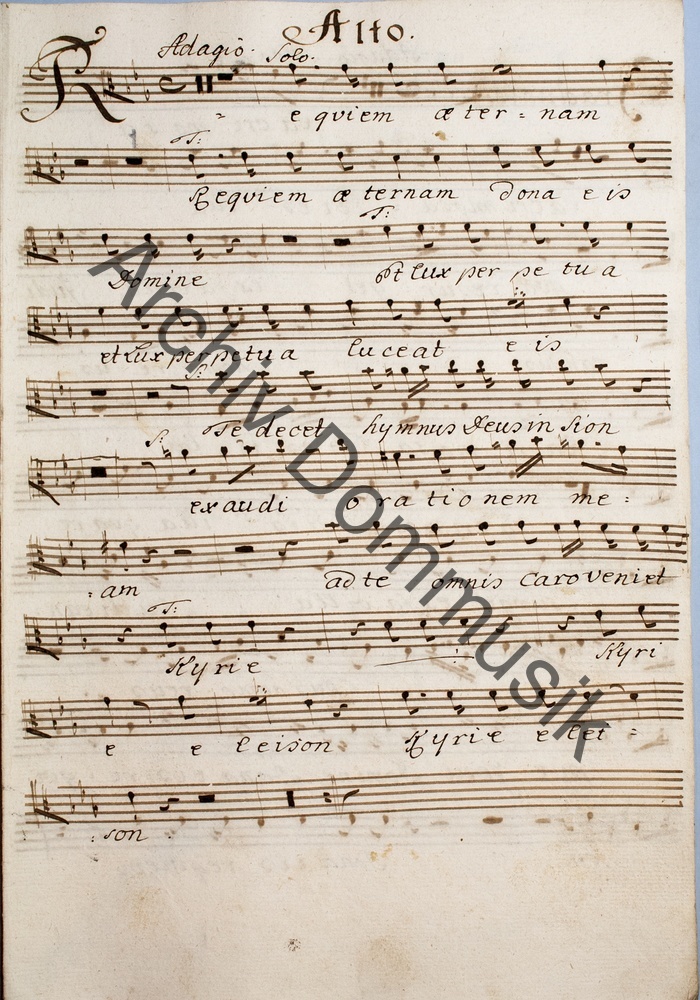 Alto.
Adagio. Solo.
R e quiem æ ter = nam
T:
Requiem æ ternam dona e is
T:
Domine Et lux per pe tu a
et Lux perpetu a luceat e is
S:
S: Te decet hymnus Deus in Sion
exaudi o ra tio nem me :
: am ad te omnis caro veniet
T:
Kyrie Kyri
e e leison Kyrie e lei =
: son
Archiv Dommusik